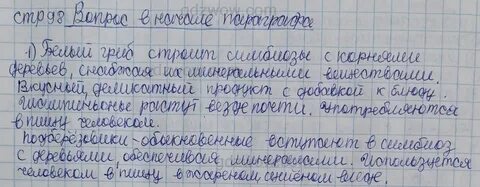 gdzwow.com
стр 98 Вопрос в начале параграфа
1) Белый гриб строит симбиозы с корнями
деревьев, снабжая их минеральными веществами.
Вкусный, деликатный продукт с добавкой к блюду.
растут везде почти. употребляются
в пищу человеком.
подберёзовики - обыкновенные вступают в симбиоз
с деревьями, обеспечивая минералами. Используется
человеком в пищу в жареном виде.